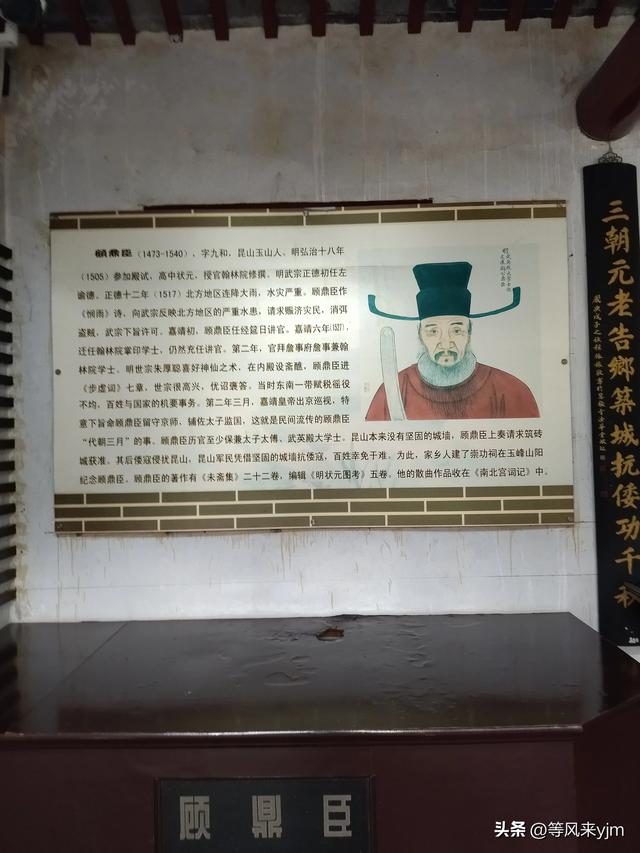 顾鼎臣（1473-1540），字九和，昆山玉山人、明弘治十八年
（1505）参加殿试，高中状元，授官翰林院修撰。明武宗正德初任左
谕德。正德十二年（1517）北方地区连降大雨，水灾严重。顾鼎臣作
《悯雨》诗，向武宗反映北方地区的严重水患，请求赈济灾民，消弭
盗贼，武宗下旨许可。嘉靖初，顾鼎臣任经筵日讲官。嘉靖六年（1527），
迁任翰林院掌印学士，仍然充任讲官。第二年，官拜詹事府詹事兼翰
林院学士。明世宗朱厚聪喜好神仙之术，在内殿设斋醮，顾鼎臣进
《步虚词》七章，世宗很高兴，优诏褒答。当时东南一带赋税徭役
不均，百姓与国家的机要事务。第二年三月，嘉靖皇帝出京巡视，特
意下旨命顾鼎臣留守京师，辅佐太子监国，这就是民间流传的顾鼎臣
“代朝三月”的事。顾鼎臣历官至少保兼太子太傅、武英殿大学士。昆山本来没有坚固的城墙，顾鼎臣上奏请求筑砖
城获准。其后倭寇侵扰昆山，昆山军民凭借坚固的城墙抗倭寇，百姓幸免于难。为此，家乡人建了崇功祠在玉峰山阳
纪念顾鼎臣。顾鼎臣的著作有《未斋集》二十二卷，编辑《明状元图考》五卷，他的散曲作品收在《南北宫词记》中。
三朝元老告乡筑城抗倭功千秋
顾鼎臣
头条 @等风来yjm